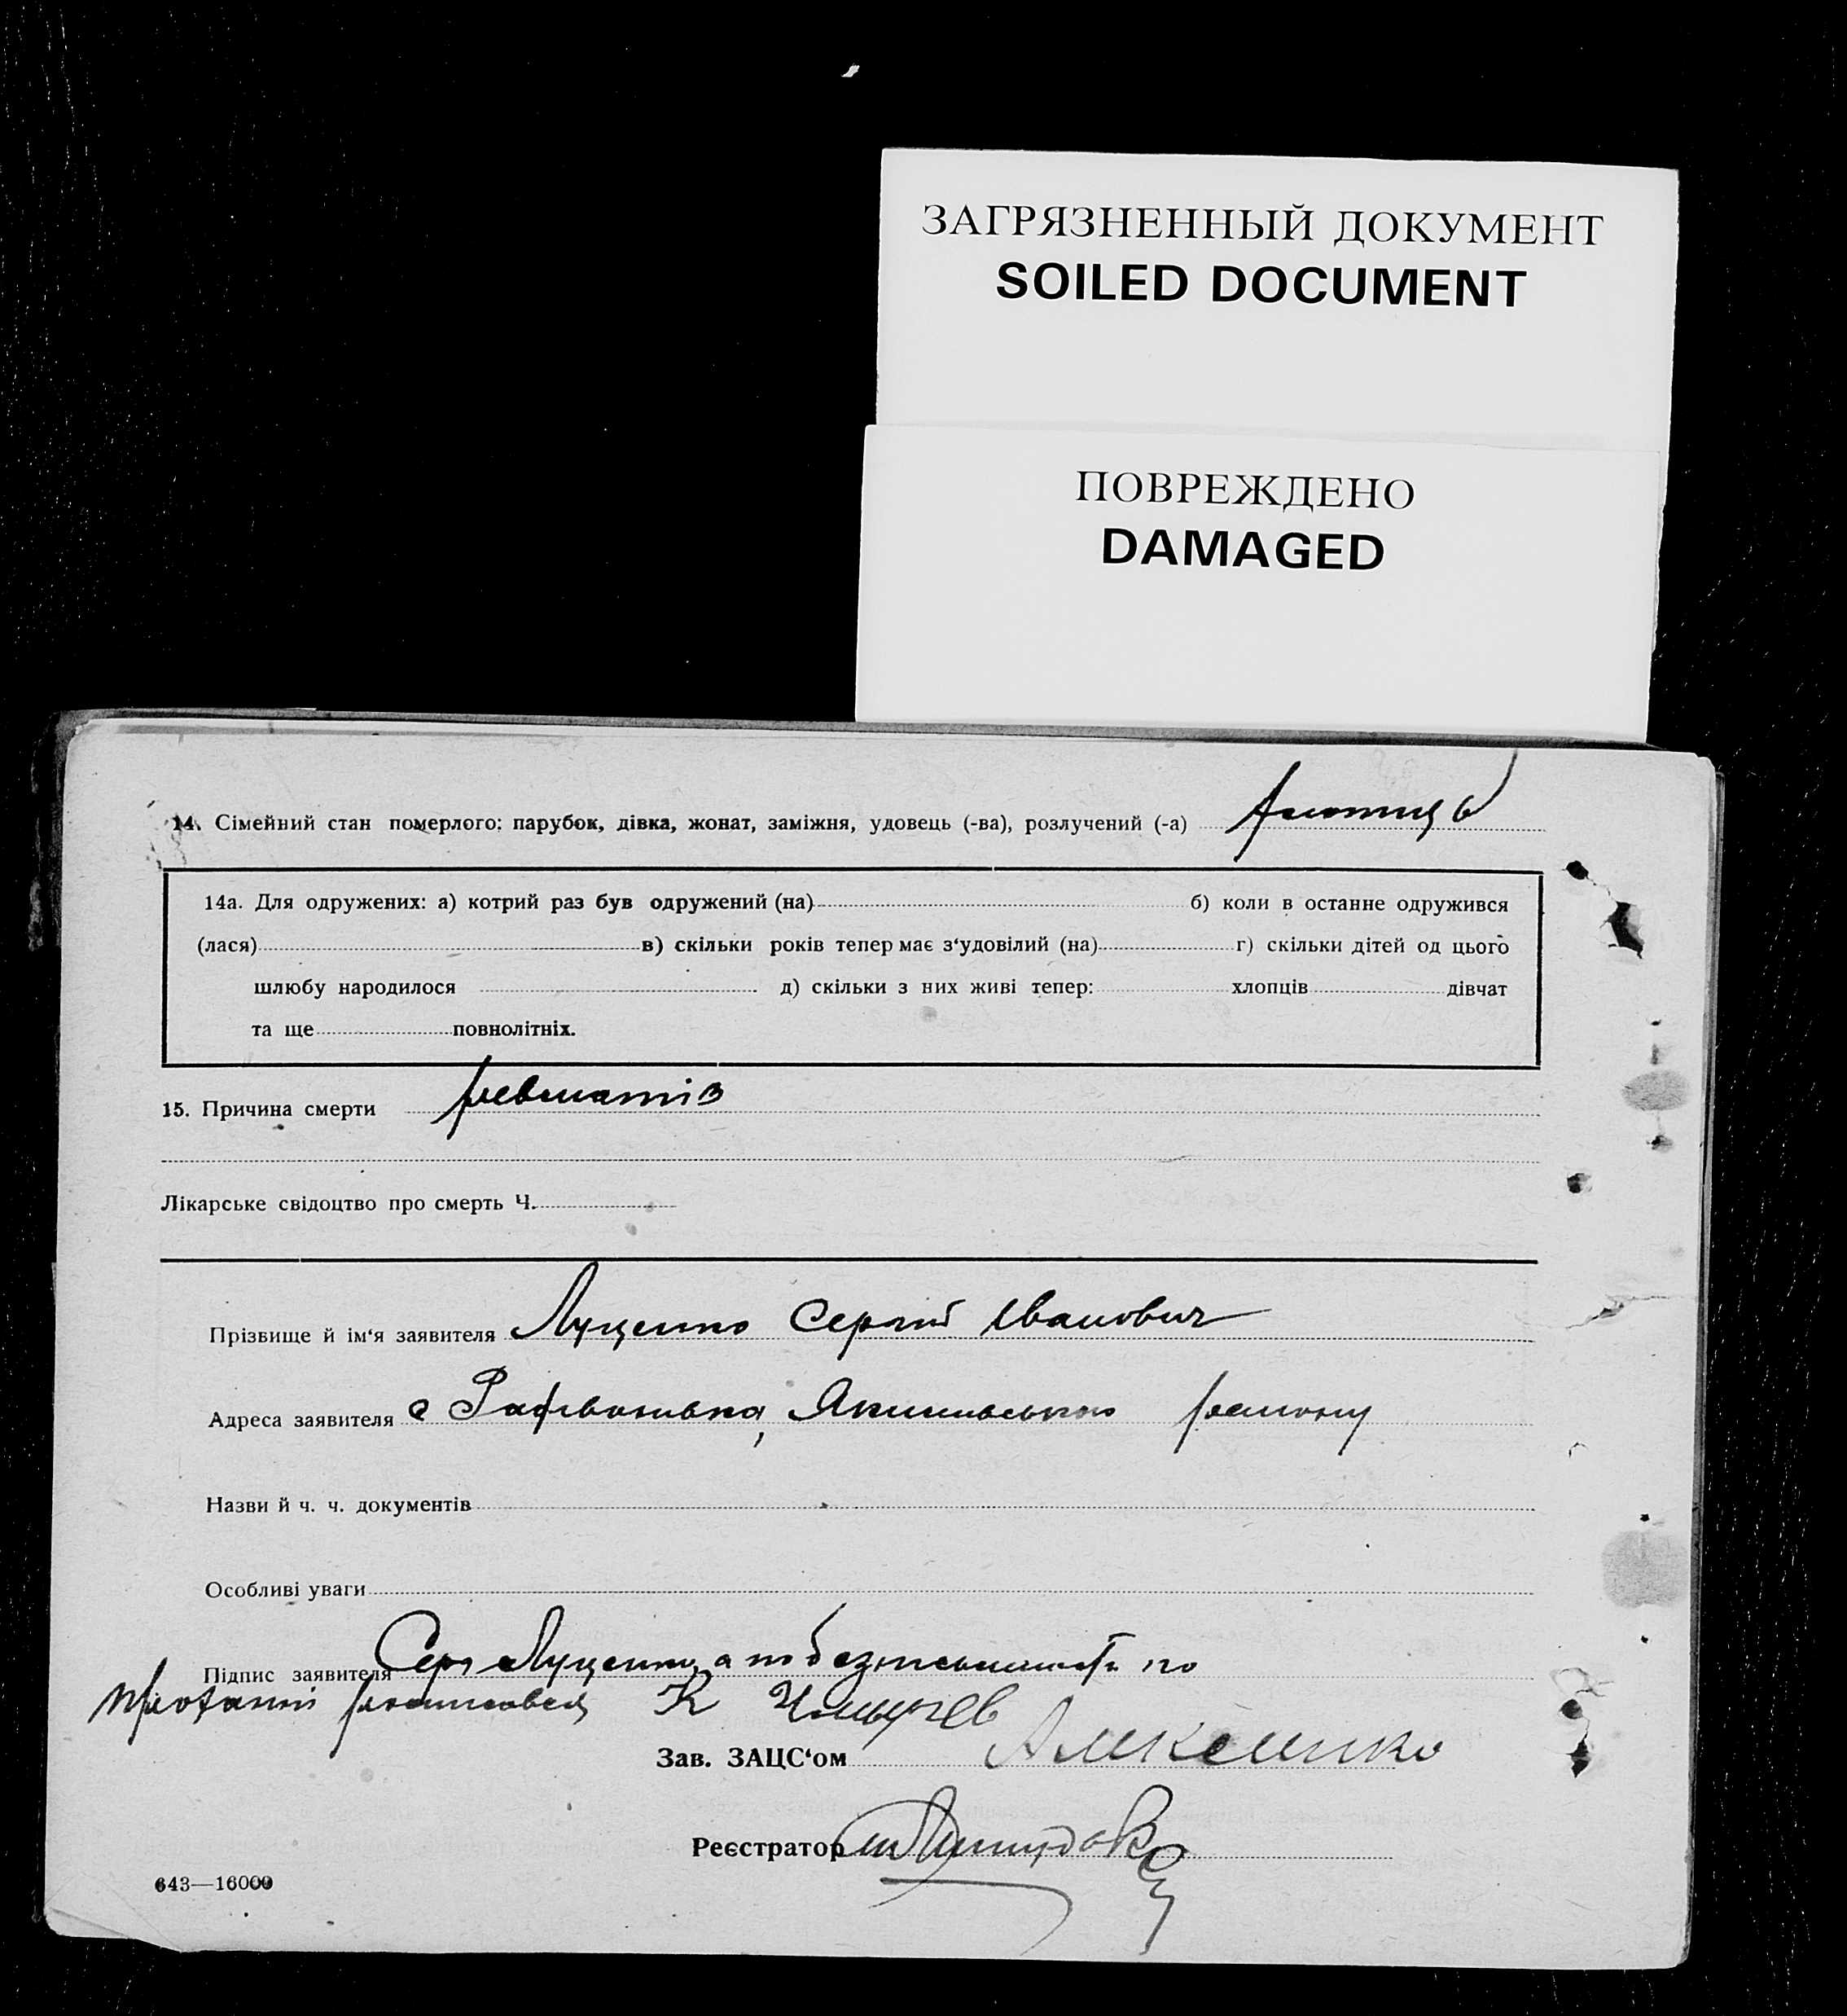 ЗАГРЯЗНЕННЫЙ ДОКУМЕНТ
SOILED DOCUMENT
ПОВРЕЖДЕНО
DAMAGED
14. Сімейний стан померлого: парубок, дівка, жонат, заміжня, удовець (-ва), розлучений (-а)
14а. Для одружених: а) котрий раз був одружений (на) б) коли в останне одружився
(лася) в) скільки років тепер має з‘удовілий (на) г) скільки дітей од цього
шлюбу народилося д) скільки з них живі тепер: хлопців дівчат
та ще повнолітніх.
15. Причина смерти ревматів
Лікарське свідоцтво про смерть Ч.
Прізвище й ім‘я заявителя Луценко Сергій Іванович
Адреса заявителя с Якимівського району
Назви й ч. ч. документів
Особливі уваги
Підпис заявителя Серг Луценко, а по безписьменності по
проханні росписався К
Зав. ЗАЦС‘ом
Реєстратор
643—16000